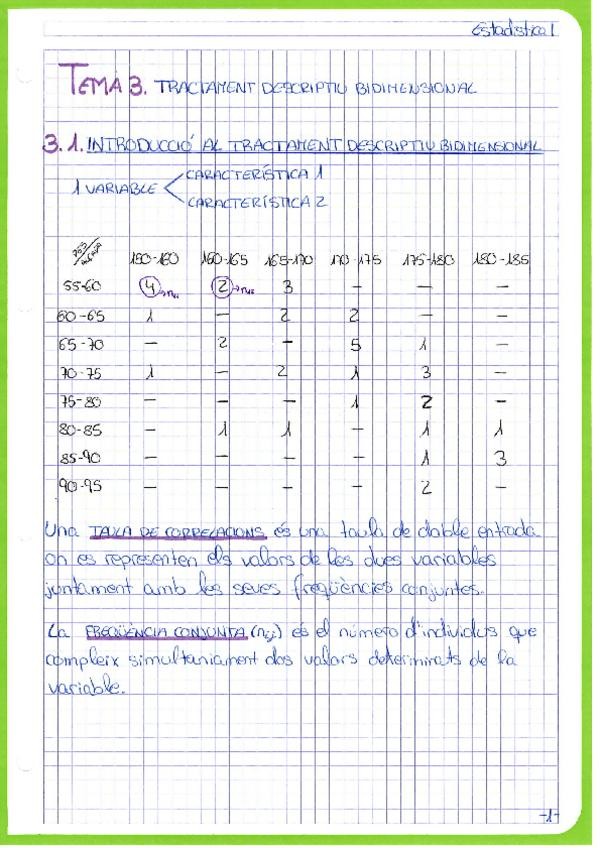 Estadística 1
TEMA 3. TRACTAMENT DESCRIPTIU BIDIMENSIONAL
3.1. INTRODUCCIÓ AL TRACTAMENT DESCRIPTIU BIDIMENSIONAL
1 VARIABLE < CARACTERÍSTICA 1
CARACTERÍSTICA 2
150-160 160-165 165-170 170-175 175-180 180-185
55-60 4 → n₁₁ 2 → n₁₂ 3 — — —
60-65 1 — 2 2 — —
65-70 — 2 — 5 1 —
70-75 1 — 2 1 3 —
75-80 — — — 1 2 —
80-85 — 1 1 — 1 1
85-90 — — — — 1 3
90-95 — — — — 2 —
Una TAULA DE CORRELACIONS és una taula de doble entrada
on es representen els valors de les dues variables
juntament amb les seves freqüències conjuntes.
La FREQÜÈNCIA CONJUNTA (nᵢⱼ) és el número d'individus que
compleix simultaniament dos valors determinats de la
variable.
-1-